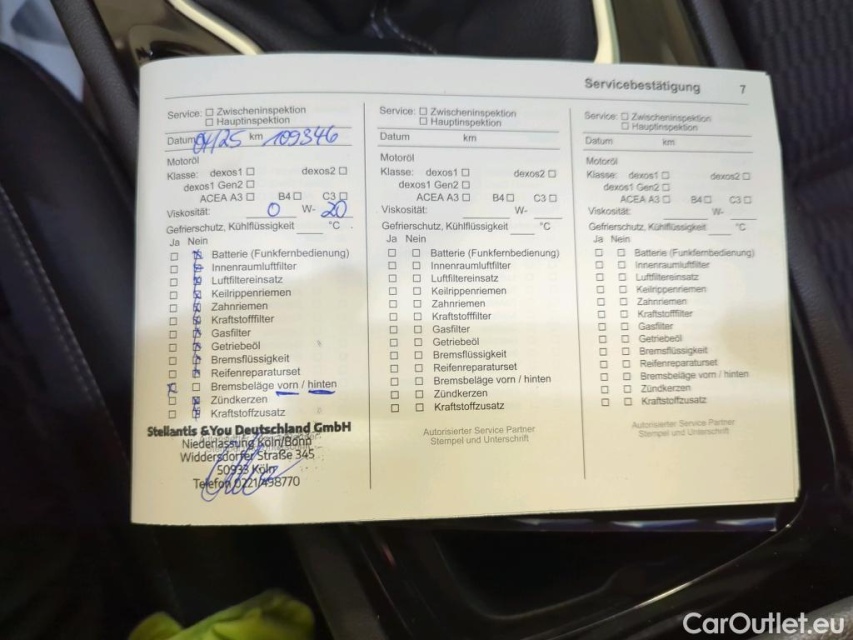 Servicebestätigung 7
Service: ☐ Zwischeninspektion
☐ Hauptinspektion
Datum 04/25 km 109346
Motoröl
Klasse: dexos1 ☐ dexos2 ☐
dexos1 Gen2 ☐
ACEA A3 ☐ B4 ☐ C3 ☐
Viskosität: 0 W- 20
Gefrierschutz, Kühlflüssigkeit ____ °C
Ja Nein
☐ ☒ Batterie (Funkfernbedienung)
☐ ☒ Innenraumluftfilter
☐ ☒ Luftfiltereinsatz
☐ ☒ Keilrippenriemen
☐ ☒ Zahnriemen
☐ ☒ Kraftstofffilter
☐ ☒ Gasfilter
☐ ☒ Getriebeöl
☐ ☒ Bremsflüssigkeit
☐ ☒ Reifenreparaturset
☒ ☐ Bremsbeläge vorn / hinten
☐ ☒ Zündkerzen
☐ ☒ Kraftstoffzusatz
Stellantis &You Deutschland GmbH
Niederlassung Köln/Bonn
Widdersdorfer Straße 345
50933 Köln
Telefon 0221/498770
Service: ☐ Zwischeninspektion
☐ Hauptinspektion
Datum km
Motoröl
Klasse: dexos1 ☐ dexos2 ☐
dexos1 Gen2 ☐
ACEA A3 ☐ B4 ☐ C3 ☐
Viskosität: ____ W- ____
Gefrierschutz, Kühlflüssigkeit ____ °C
Ja Nein
☐ ☐ Batterie (Funkfernbedienung)
☐ ☐ Innenraumluftfilter
☐ ☐ Luftfiltereinsatz
☐ ☐ Keilrippenriemen
☐ ☐ Zahnriemen
☐ ☐ Kraftstofffilter
☐ ☐ Gasfilter
☐ ☐ Getriebeöl
☐ ☐ Bremsflüssigkeit
☐ ☐ Reifenreparaturset
☐ ☐ Bremsbeläge vorn / hinten
☐ ☐ Zündkerzen
☐ ☐ Kraftstoffzusatz
Autorisierter Service Partner
Stempel und Unterschrift
Service: ☐ Zwischeninspektion
☐ Hauptinspektion
Datum km
Motoröl
Klasse: dexos1 ☐ dexos2 ☐
dexos1 Gen2 ☐
ACEA A3 ☐ B4 ☐ C3 ☐
Viskosität: ____ W- ____
Gefrierschutz, Kühlflüssigkeit ____ °C
Ja Nein
☐ ☐ Batterie (Funkfernbedienung)
☐ ☐ Innenraumluftfilter
☐ ☐ Luftfiltereinsatz
☐ ☐ Keilrippenriemen
☐ ☐ Zahnriemen
☐ ☐ Kraftstofffilter
☐ ☐ Gasfilter
☐ ☐ Getriebeöl
☐ ☐ Bremsflüssigkeit
☐ ☐ Reifenreparaturset
☐ ☐ Bremsbeläge vorn / hinten
☐ ☐ Zündkerzen
☐ ☐ Kraftstoffzusatz
Autorisierter Service Partner
Stempel und Unterschrift
CarOutlet.eu